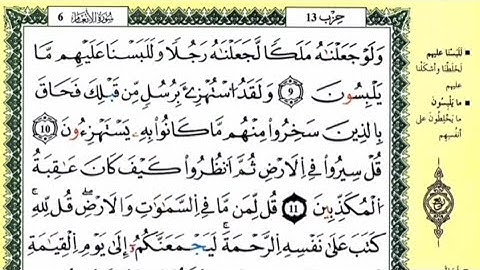 حزب 13
سورة الأنعام 6
وَلَوْ جَعَلْنَٰهُ مَلَكًا لَّجَعَلْنَٰهُ رَجُلًا وَلَلَبَسْنَا عَلَيْهِم مَّا
يَلْبِسُونَ 9 وَلَقَدُ اسْتُهْزِئَ بِرُسُلٍ مِّن قَبْلِكَ فَحَاقَ
بِالذِينَ سَخِرُوا مِنْهُم مَّا كَانُوا بِهِ يَسْتَهْزِءُونَ 10
قُلْ سِيرُوا فِي الْأَرْضِ ثُمَّ انظُرُوا كَيْفَ كَانَ عَٰقِبَةُ
الْمُكَذِّبِينَ 11 قُل لِّمَن مَّا فِي السَّمَٰوَٰتِ وَالْأَرْضِ قُل لِّلهِ
كَتَبَ عَلَىٰ نَفْسِهِ الرَّحْمَةَ لَيَجْمَعَنَّكُمْ إِلَىٰ يَوْمِ الْقِيَٰمَةِ
لَلَبَسْنا عليهم
لَخَلَطْنا وأشكَلْنا
عليهم
ما يَلْبِسُون
ما يَخْلِطُون على
أنفسهم